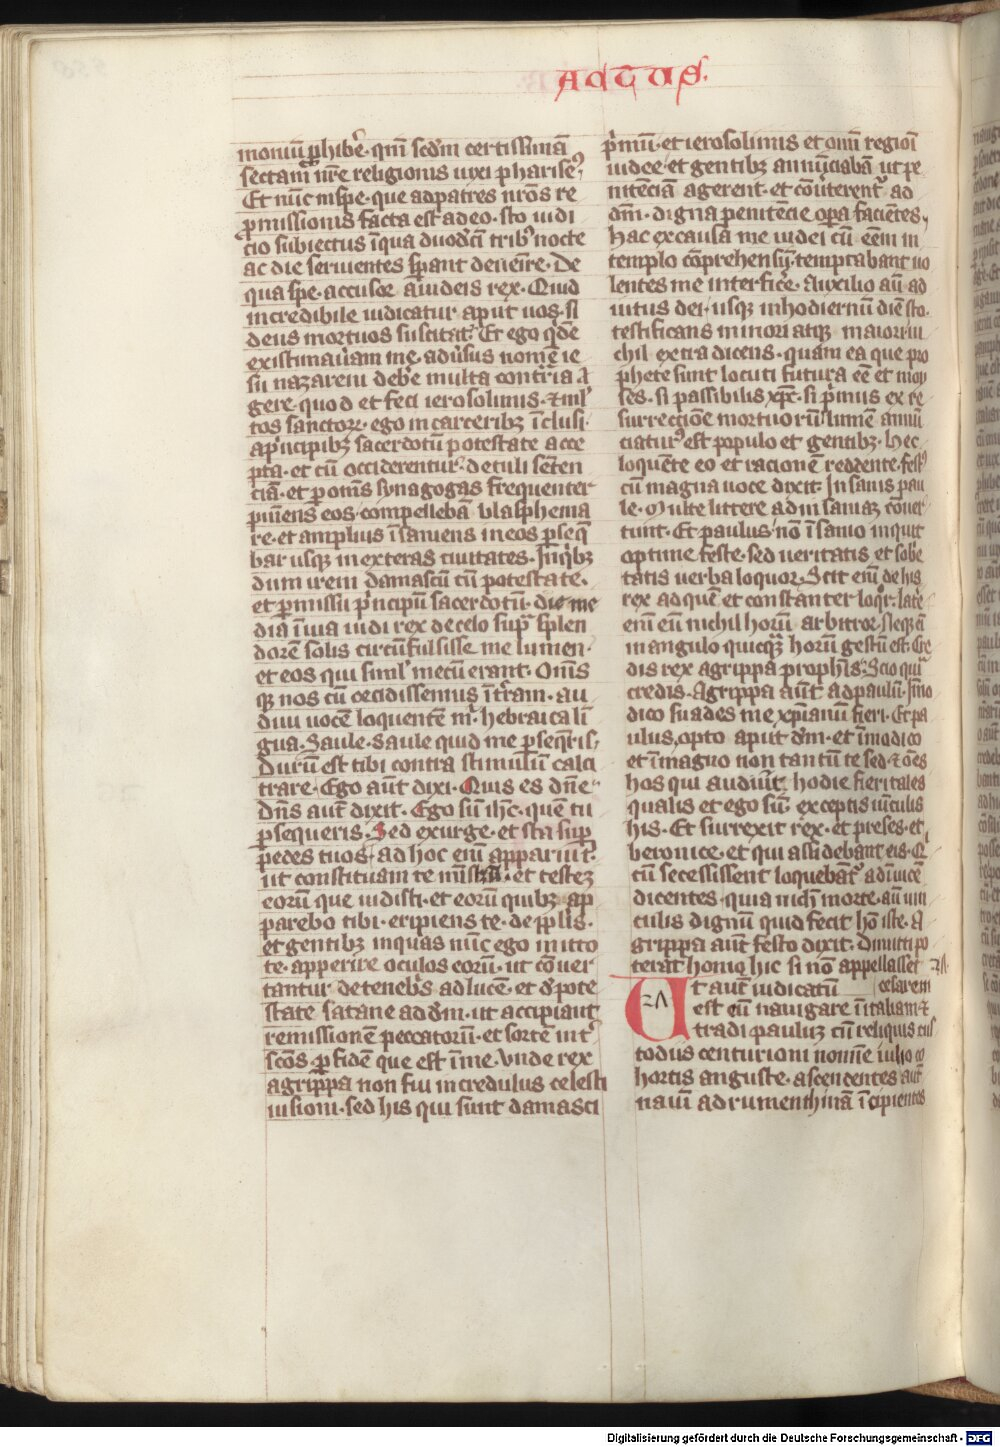 ACTUS.
moniū ꝑhibe᷑. qm̄ scd̓m certissimā
sectam nr̄e religionis vixi pharise᷒
Et nūc īspe. que ad patres nr̄os re
ꝓmissionis facta est a deo. sto iudi
cio subiectus ī qua duodecī trib᷒ nocte
ac die seruientes sꝑant deuēire. De
qua spe. accusor a iudeis rex. Quid
incredibile iudicatur aput uos. si
deus mortuos suscitat᷑. Et ego qͥde
existimauāam me. adūsus nomē ie
su nazareni deb̓e multa contͣria a
gere. quod et feci ierosolimis. ⁊ ml᷑
tos sanctoꝝ. ego in carceribꝫ īclusi.
a pͥncipibꝫ sacerdotū potestate acce
pta. et cū occiderentur. detuli sēten
ciā. et ꝑ om̄s synagogas frequenter
puniens eos. compellebā blasphema
re. et amplius īsaniens in eos ꝑseq̄
bar usqꝫ in exteras ciuitates. In qͥbꝫ
dum irem damascū cū potestate.
et ꝑmissu pͥncipū sacerdotū. die me
dia ī uia uidi rex de celo supͣ splen
dorē solis circūfulsisse me lumen.
et eos qui siml᷑ mecū erant. Om̄s
qꝫ nos cū cecidissemus ī t᷑ram. au
diui uocē loquentē mͥ. hebraica lī
gua. Saule. Saule quid me ꝑseqͣris.
Durū est tibi contra stimulū calci
trare. Ego aūt dixi. Quis es dn̄e.
Dn̄s aūt dixit. Ego sū ih̄c. quē tu
ꝑsequeris. Sed exurge. et sta suꝑ
pedes tuos. ad hoc eni᷑ apparui t᷑.
ut constituam te mīstrū. et testeꝫ
eorū que uidisti. et eorū quibꝫ ap
parebo tibi. eripiens te. de pplis.
et gentibꝫ in quas nūc ego mitto
te. apperire oculos eorū. ut cōuer
tantur de tenebͥs ad lucē. et d̓ pote
state satane ad dm̄. ut accipiant
remissionē peccatorū. et sortē int᷑
scōs. ꝑ fidē que est ī me. Vnde rex
agrippa non fui incredulus celesti
uisioni. sed his qui sunt damasci
pͥmū. et ierosolimis et omi᷑ regioī
iudee. et gentibꝫ annūciabā ut pe
nitēciā agerent. et cōuerterent᷑ ad
dm̄. digna penitēcie oꝑa faciētes.
Hac ex causa me iudei cū eēm in
templo cōprehensū. temptabant uo
lentes me interfice᷑. Auxilio aū ad
iutus dei. usqꝫ in hodiernū diē sto.
testificans minori atqꝫ maiori. ni
chil extra dicens. quam ea que pro
phete sunt locuti futura eē et moy
ses. si passibilis xp̄c. si pͥmus ex re
surrectiōe mortuorū. lumē annū
ciatur᷒ est populo et gentibꝫ. Hec
loquēte eo et racionē reddente. fest᷒
cū magna uoce dixit. Insanis pau
le. Multe littere ad insaniaꝫ cōuer
tunt. Et paulus. nō īsanio inquit
optime feste. sed ueritatis et sobͥe
tatis uerba loquor. Scit eni᷑ de his
rex ad quē et constanter loqͬ. late᷑
eni᷑ eū nichil horū arbitror. Neqꝫ eī
in angulo quicqͣꝫ horū gestū est. Cre
dis rex agrippa prophīs. Scio quiͣ
credis. Agrippa aūt ad paulū. ī mo
dico suades me xp̄ianū fieri. Et pa
ulus. opto aput dm̄. et ī modico
et ī magno non tantū te. sed ⁊ oēs
hos qui audiūt. hodie fieri tales
qualis et ego sū. exceptis uīculis
his. Et surrexit rex. et preses. et
beronice. et qui assidebant eis. Et
cū secessissent loquebāt᷑ ad īuicē
dicentes. quia nich᷑ morte. aū uin
culis dignū quid fecit hō iste. A
grippa aūt festo dixit. Dimitti po
terat homo hic si nō appellasset
cesarem
Ut aūt iudicatū
est eū nauigare ī italiam. ⁊
tradi pauluꝫ cū reliquis cus
todiis centurioni nomīe iulio co
hortis auguste. ascendentes aūt
nauī adrumenthinā īcipientes
Digitalisierung gefördert durch die Deutsche Forschungsgemeinschaft - DFG